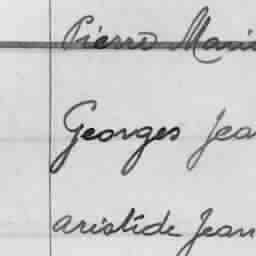 Pierre Marie
Georges Jean
aristide Jean